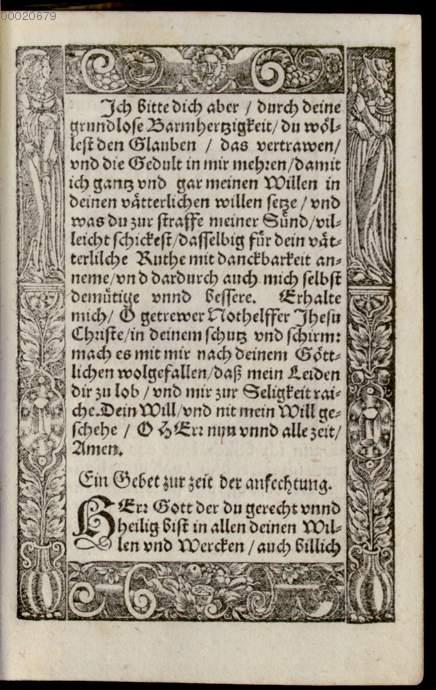 00020679
Ich bitte dich aber / durch deine
grundlose Barmhertzigkeit / du wöl-
lest den Glauben / das vertrawen /
vnd die Gedult in mir mehren / damit
ich gantz vnd gar meinen Willen in
deinen vätterlichen willen setze / vnd
was du zur straffe meiner Sünd / vil-
leicht schickest / dasselbig für dein vät-
terlilche Ruthe mit danckbarkeit an-
neme / vnd dardurch auch mich selbst
demütige vnnd bessere. Erhalte
mich / O getrewer Nothelffer Jhesu
Christe / in deinem schutz vnd schirm:
mach es mit mir nach deinem Gött-
lichen wolgefallen / daß mein Leiden
dir zu lob / vnd mir zur Seligkeit rai-
che. Dein Will / vnd nit mein Will ge-
schehe / O HErr nun vnnd alle zeit /
Amen.
Ein Gebet zur zeit der anfechtung.
HErr Gott der du gerecht vnnd
heilig bist in allen deinen Wil-
len vnd Wercken / auch billich